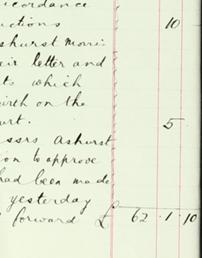 ccordance
uctions 10
shurst Morris
eir letter and
ts which
irth on the
urt. 5
ssrs Ashurst
ion to approve
had been made
yesterday
forward £ 62 . 1 . 10